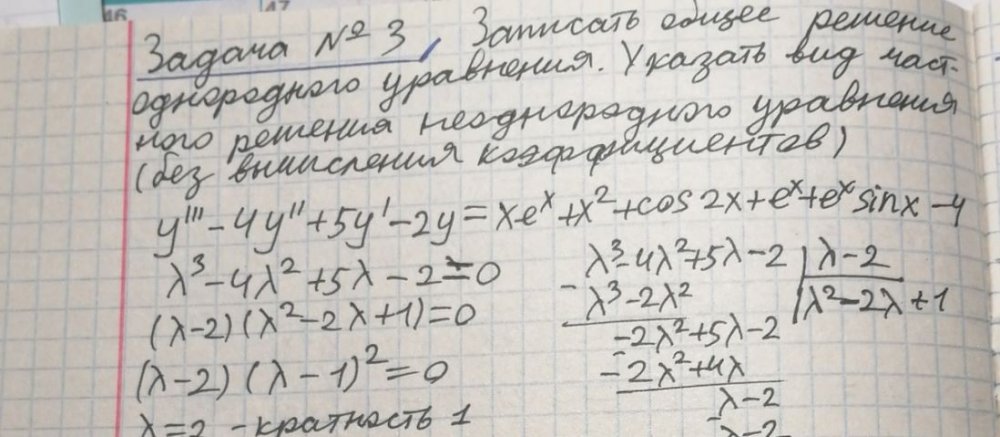 46
47
Задача № 3, Записать общее решение
однородного уравнения. Указать вид част-
ного решения неоднородного уравнения
(без вычисления коэффициентов)
y''' - 4y'' + 5y' - 2y = xe^x + x² + cos 2x + e^x + e^x sin x - 4
λ³ - 4λ² + 5λ - 2 = 0
(λ-2)(λ² - 2λ + 1) = 0
(λ-2)(λ-1)² = 0
λ = 2 - кратность 1
λ³ - 4λ² + 5λ - 2 | λ - 2
- λ³ - 2λ² | λ² - 2λ + 1
-2λ² + 5λ - 2
- -2λ² + 4λ
λ - 2
λ - 2